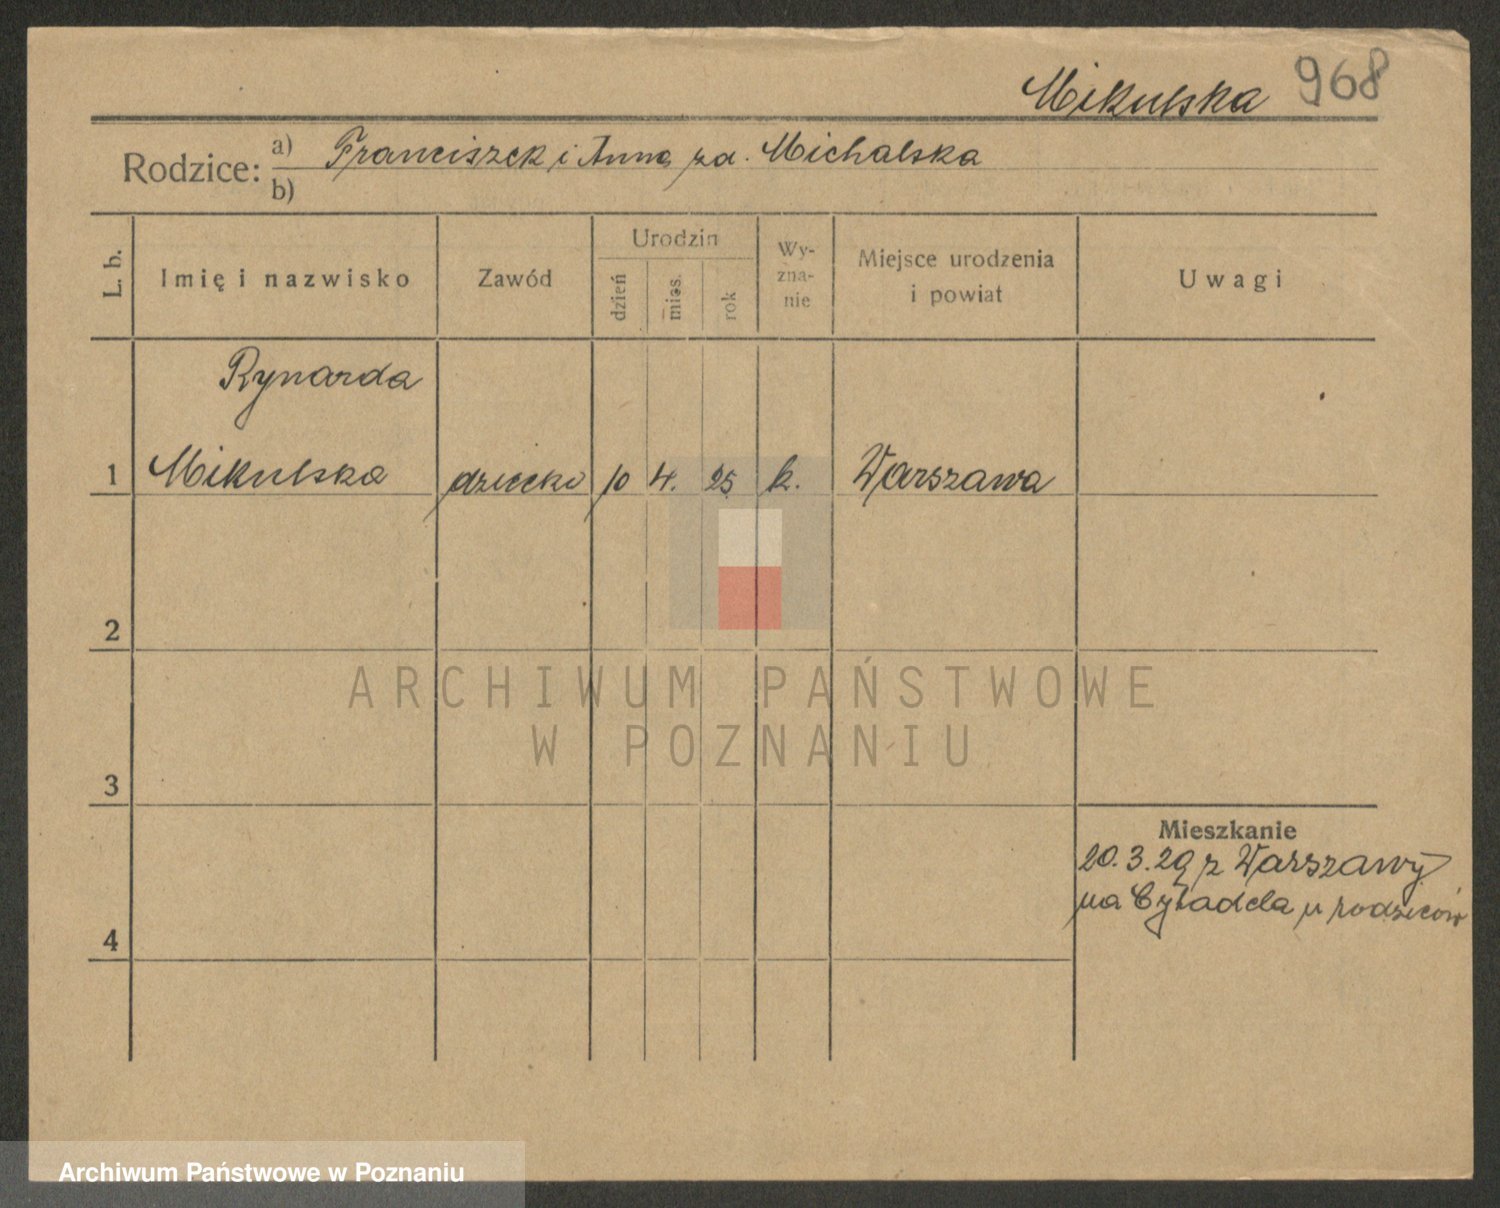 Mikulska 968
Rodzice: a) Franciszek i Anna zd. Michalska
b)
L. b. Imię i nazwisko Zawód Urodzin dzień mies. rok Wyzna-nie Miejsce urodzenia i powiat Uwagi
Rynarda
1 Mikulska dziecko 10 4. 25 k. Warszawa
2
ARCHIWUM PAŃSTWOWE
W POZNANIU
3
Mieszkanie
20.3.29 z Warszawy
na Cytadela u rodziców
4
Archiwum Państwowe w Poznaniu